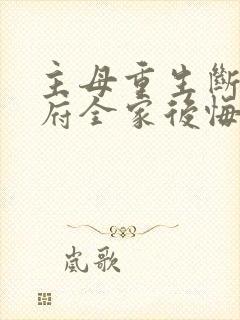 主母重生斷
府全家後悔
嵐歌